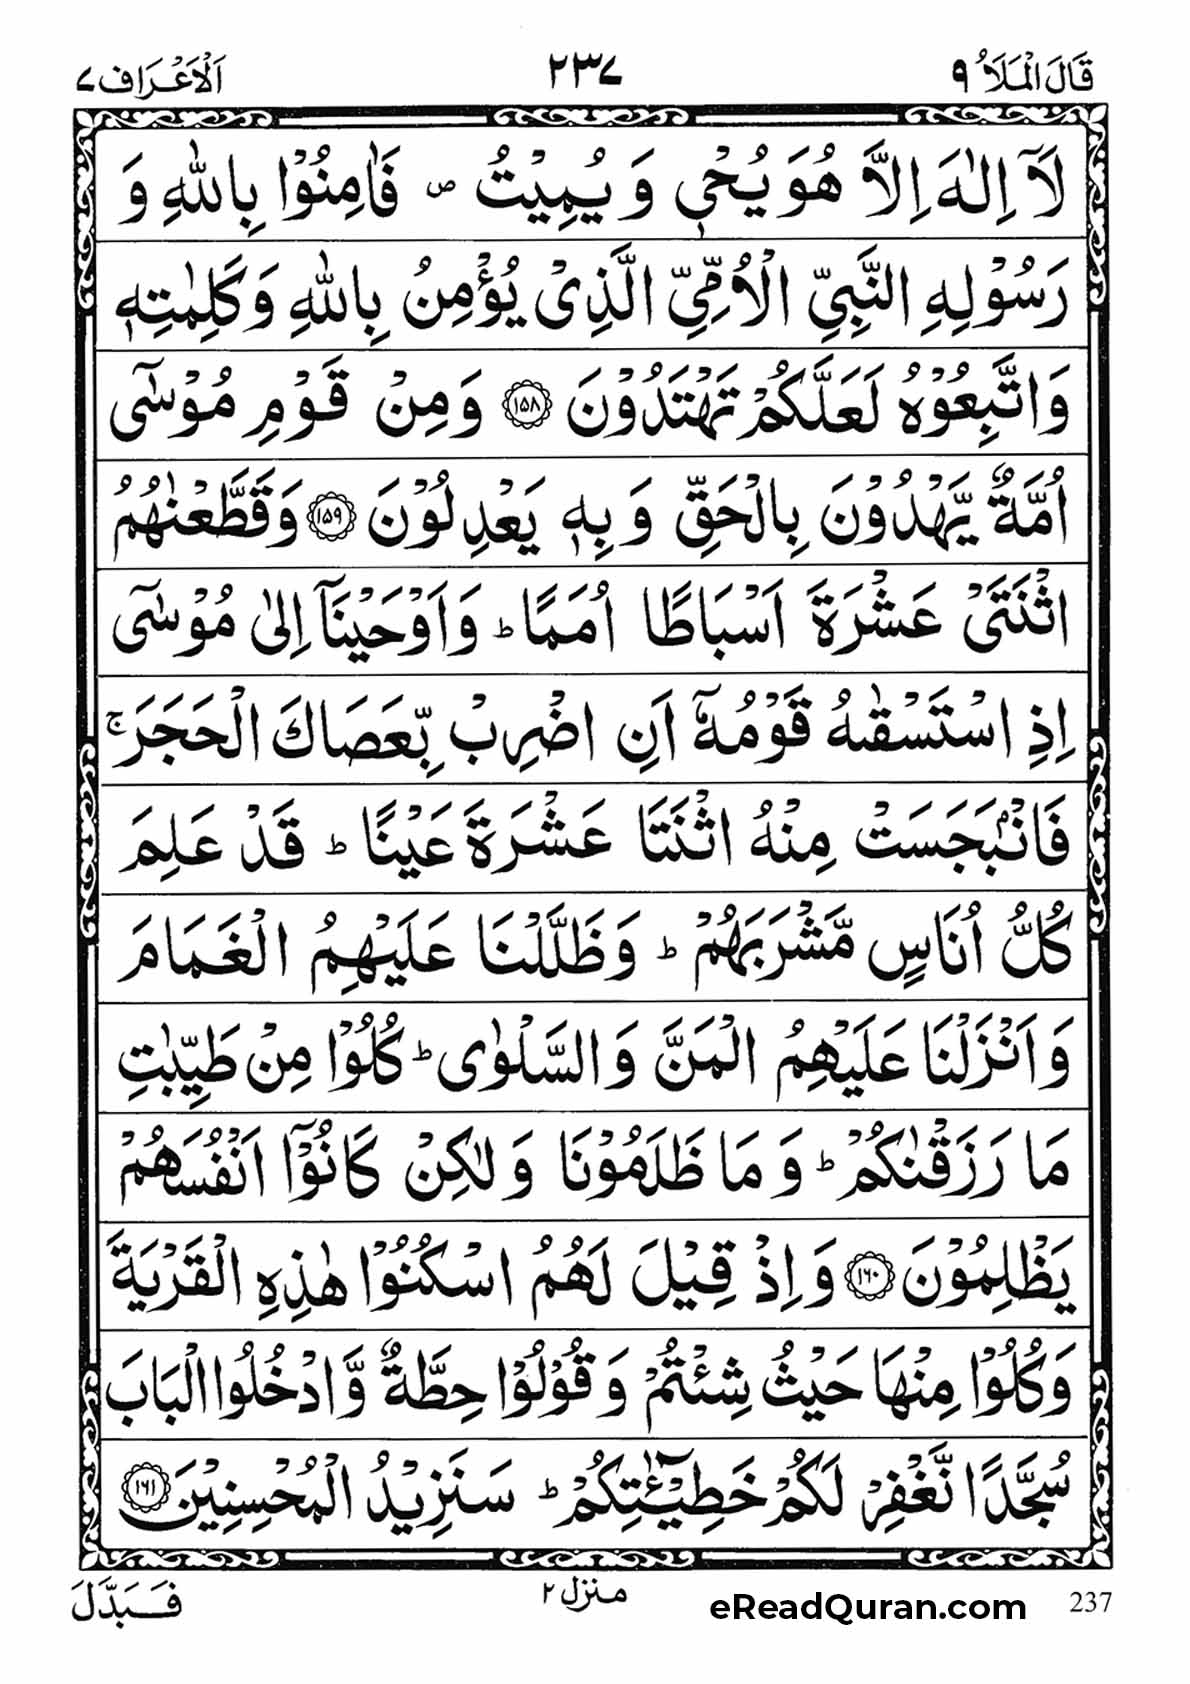 قَالَ الْمَلَاُ ٩
٢٣٧
اَلْاَعْرَاف ٧
لَاۤ اِلٰهَ اِلَّا هُوَ يُحْيٖ وَ يُمِيْتُ ۪ فَاٰمِنُوْا بِاللّٰهِ وَ
رَسُوْلِهِ النَّبِيِّ الْاُمِّيِّ الَّذِيْ يُؤْمِنُ بِاللّٰهِ وَ كَلِمٰتِهٖ
وَاتَّبِعُوْهُ لَعَلَّكُمْ تَهْتَدُوْنَ ﴿١٥٨﴾ وَمِنْ قَوْمِ مُوْسٰۤى
اُمَّةٌ يَّهْدُوْنَ بِالْحَقِّ وَ بِهٖ يَعْدِلُوْنَ ﴿١٥٩﴾ وَقَطَّعْنٰهُمُ
اثْنَتَيْ عَشْرَةَ اَسْبَاطًا اُمَمًا ؕ وَاَوْحَيْنَاۤ اِلٰى مُوْسٰۤى
اِذِ اسْتَسْقٰىهُ قَوْمُهٗۤ اَنِ اضْرِبْ بِّعَصَاكَ الْحَجَرَ ۚ
فَانْۢبَجَسَتْ مِنْهُ اثْنَتَا عَشْرَةَ عَيْنًا ؕ قَدْ عَلِمَ
كُلُّ اُنَاسٍ مَّشْرَبَهُمْ ؕ وَظَلَّلْنَا عَلَيْهِمُ الْغَمَامَ
وَاَنْزَلْنَا عَلَيْهِمُ الْمَنَّ وَالسَّلْوٰى ؕ كُلُوْا مِنْ طَيِّبٰتِ
مَا رَزَقْنٰكُمْ ؕ وَ مَا ظَلَمُوْنَا وَ لٰكِنْ كَانُوْۤا اَنْفُسَهُمْ
يَظْلِمُوْنَ ﴿١٦٠﴾ وَاِذْ قِيْلَ لَهُمُ اسْكُنُوْا هٰذِهِ الْقَرْيَةَ
وَكُلُوْا مِنْهَا حَيْثُ شِئْتُمْ وَ قُوْلُوْا حِطَّةٌ وَّادْخُلُوا الْبَابَ
سُجَّدًا نَّغْفِرْ لَكُمْ خَطِيْٓـٰٔتِكُمْ ؕ سَنَزِيْدُ الْمُحْسِنِيْنَ ﴿١٦١﴾
237
eReadQuran.com
منزل ٢
فَبَدَّلَ